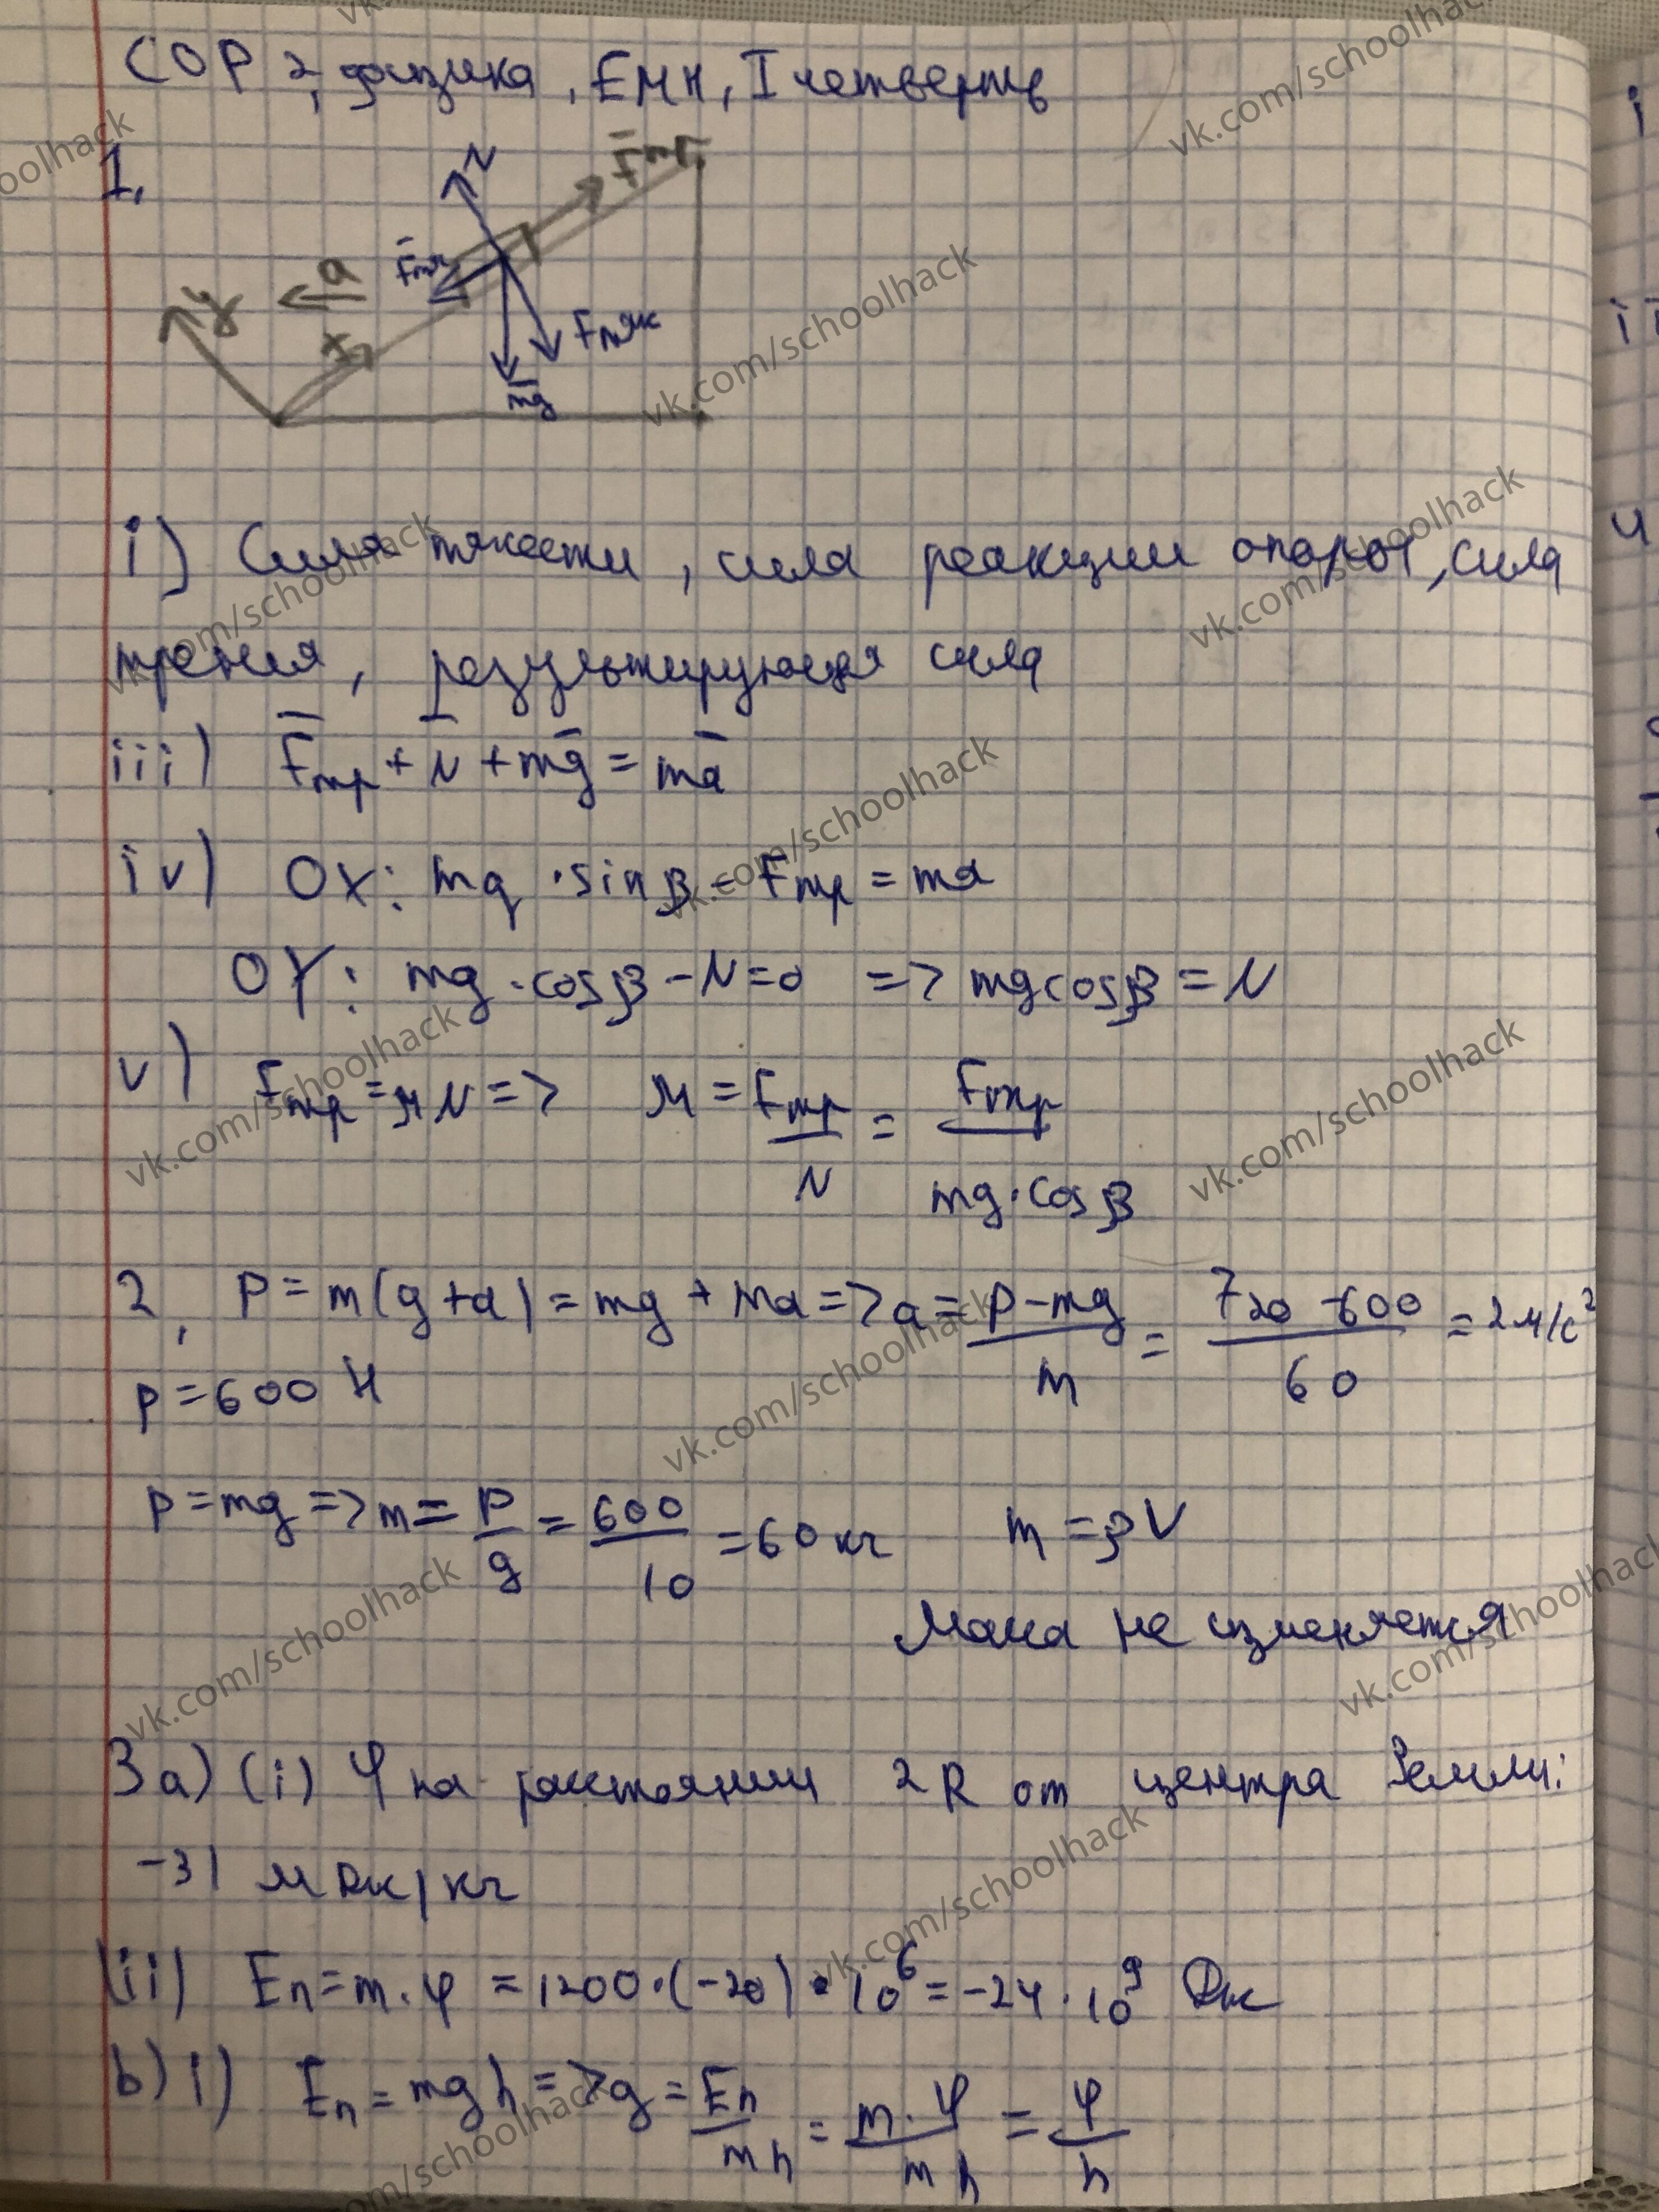 СОР 2, физика, ЕМН, I четверть
1.
N
F тр
a
y
x
F тяж
mg
i) Сила тяжести, сила реакции опоры, сила
трения, результирующая сила
iii) F̅тр + N̅ + mg̅ = ma̅
iv) OX: mg · sin β - Fтр = ma
OY: mg · cos β - N = 0 => mg cos β = N
v) Fтр = μN => μ = Fтр / N = Fтр / mg · cos β
2, P = m(g+a) = mg + ma => a = P - mg / m = 720 - 600 / 60 = 2 м/с²
P = 600 Н
P = mg => m = P / g = 600 / 10 = 60 кг m = ρV
Масса не изменяется
3 a) (i) φ на расстоянии 2R от центра Земли:
-31 МДж/кг
(ii) Eп = m · φ = 1200 · (-20) · 10⁶ = -24 · 10⁹ Дж
b) i) Eп = mgh => g = Eп / mh = m · φ / mh = φ / h
vk.com/schoolhack